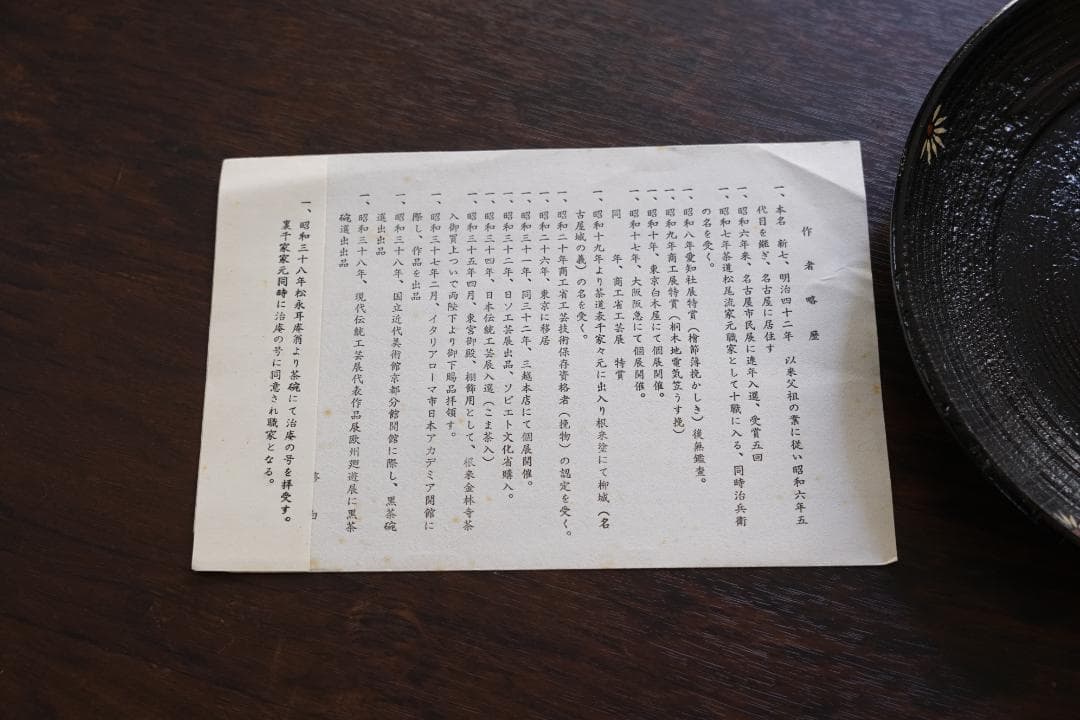 作者略歴
一、本名 新七、明治四十二年 以来父祖の業に従い昭和六年五
代目を継ぎ、名古屋に居住す
一、昭和六年来、名古屋市民展に連年入選、受賞五回
一、昭和七年茶道松尾流家元職家として十職に入る、同時治兵衛
の名を受く。
一、昭和八年愛知社展特賞（檜節薄挽かしき）後無鑑査。
一、昭和九年商工展特賞（桐木地電気笠うす挽）
一、昭和十年、東京白木屋にて個展開催。
一、昭和十七年、大阪阪急にて個展開催。
同 年、商工省工芸展 特賞
一、昭和十九年より茶道表千家々元に出入り根来塗にて柳城（名
古屋城の義）の名を受く。
一、昭和二十年商工省工芸技術保存資格者（挽物）の認定を受く。
一、昭和二十六年、東京に移居
一、昭和三十一年、同三十二年、三越本店にて個展開催。
一、昭和三十二年、日ソ工芸展出品、ソビエト文化省購入。
一、昭和三十四年、日本伝統工芸展入選（こま茶入）
一、昭和三十五年四月、東宮御殿、棚飾用として、根来金林寺茶
入御買上ついで両陛下より御下賜品拝領す。
一、昭和三十七年二月、イタリアローマ市日本アカデミア開館に
際し、作品を出品
一、昭和三十八年、国立近代美術館京都分館開館に際し、黒茶碗
選出出品
一、昭和三十八年、現代伝統工芸展代表作品展欧州廻遊展に黒茶
碗選出出品
一、昭和三十八年松永耳庵翁より茶碗にて治庵の号を拝受す。
裏千家家元同時に治庵の号に同意され職家となる。